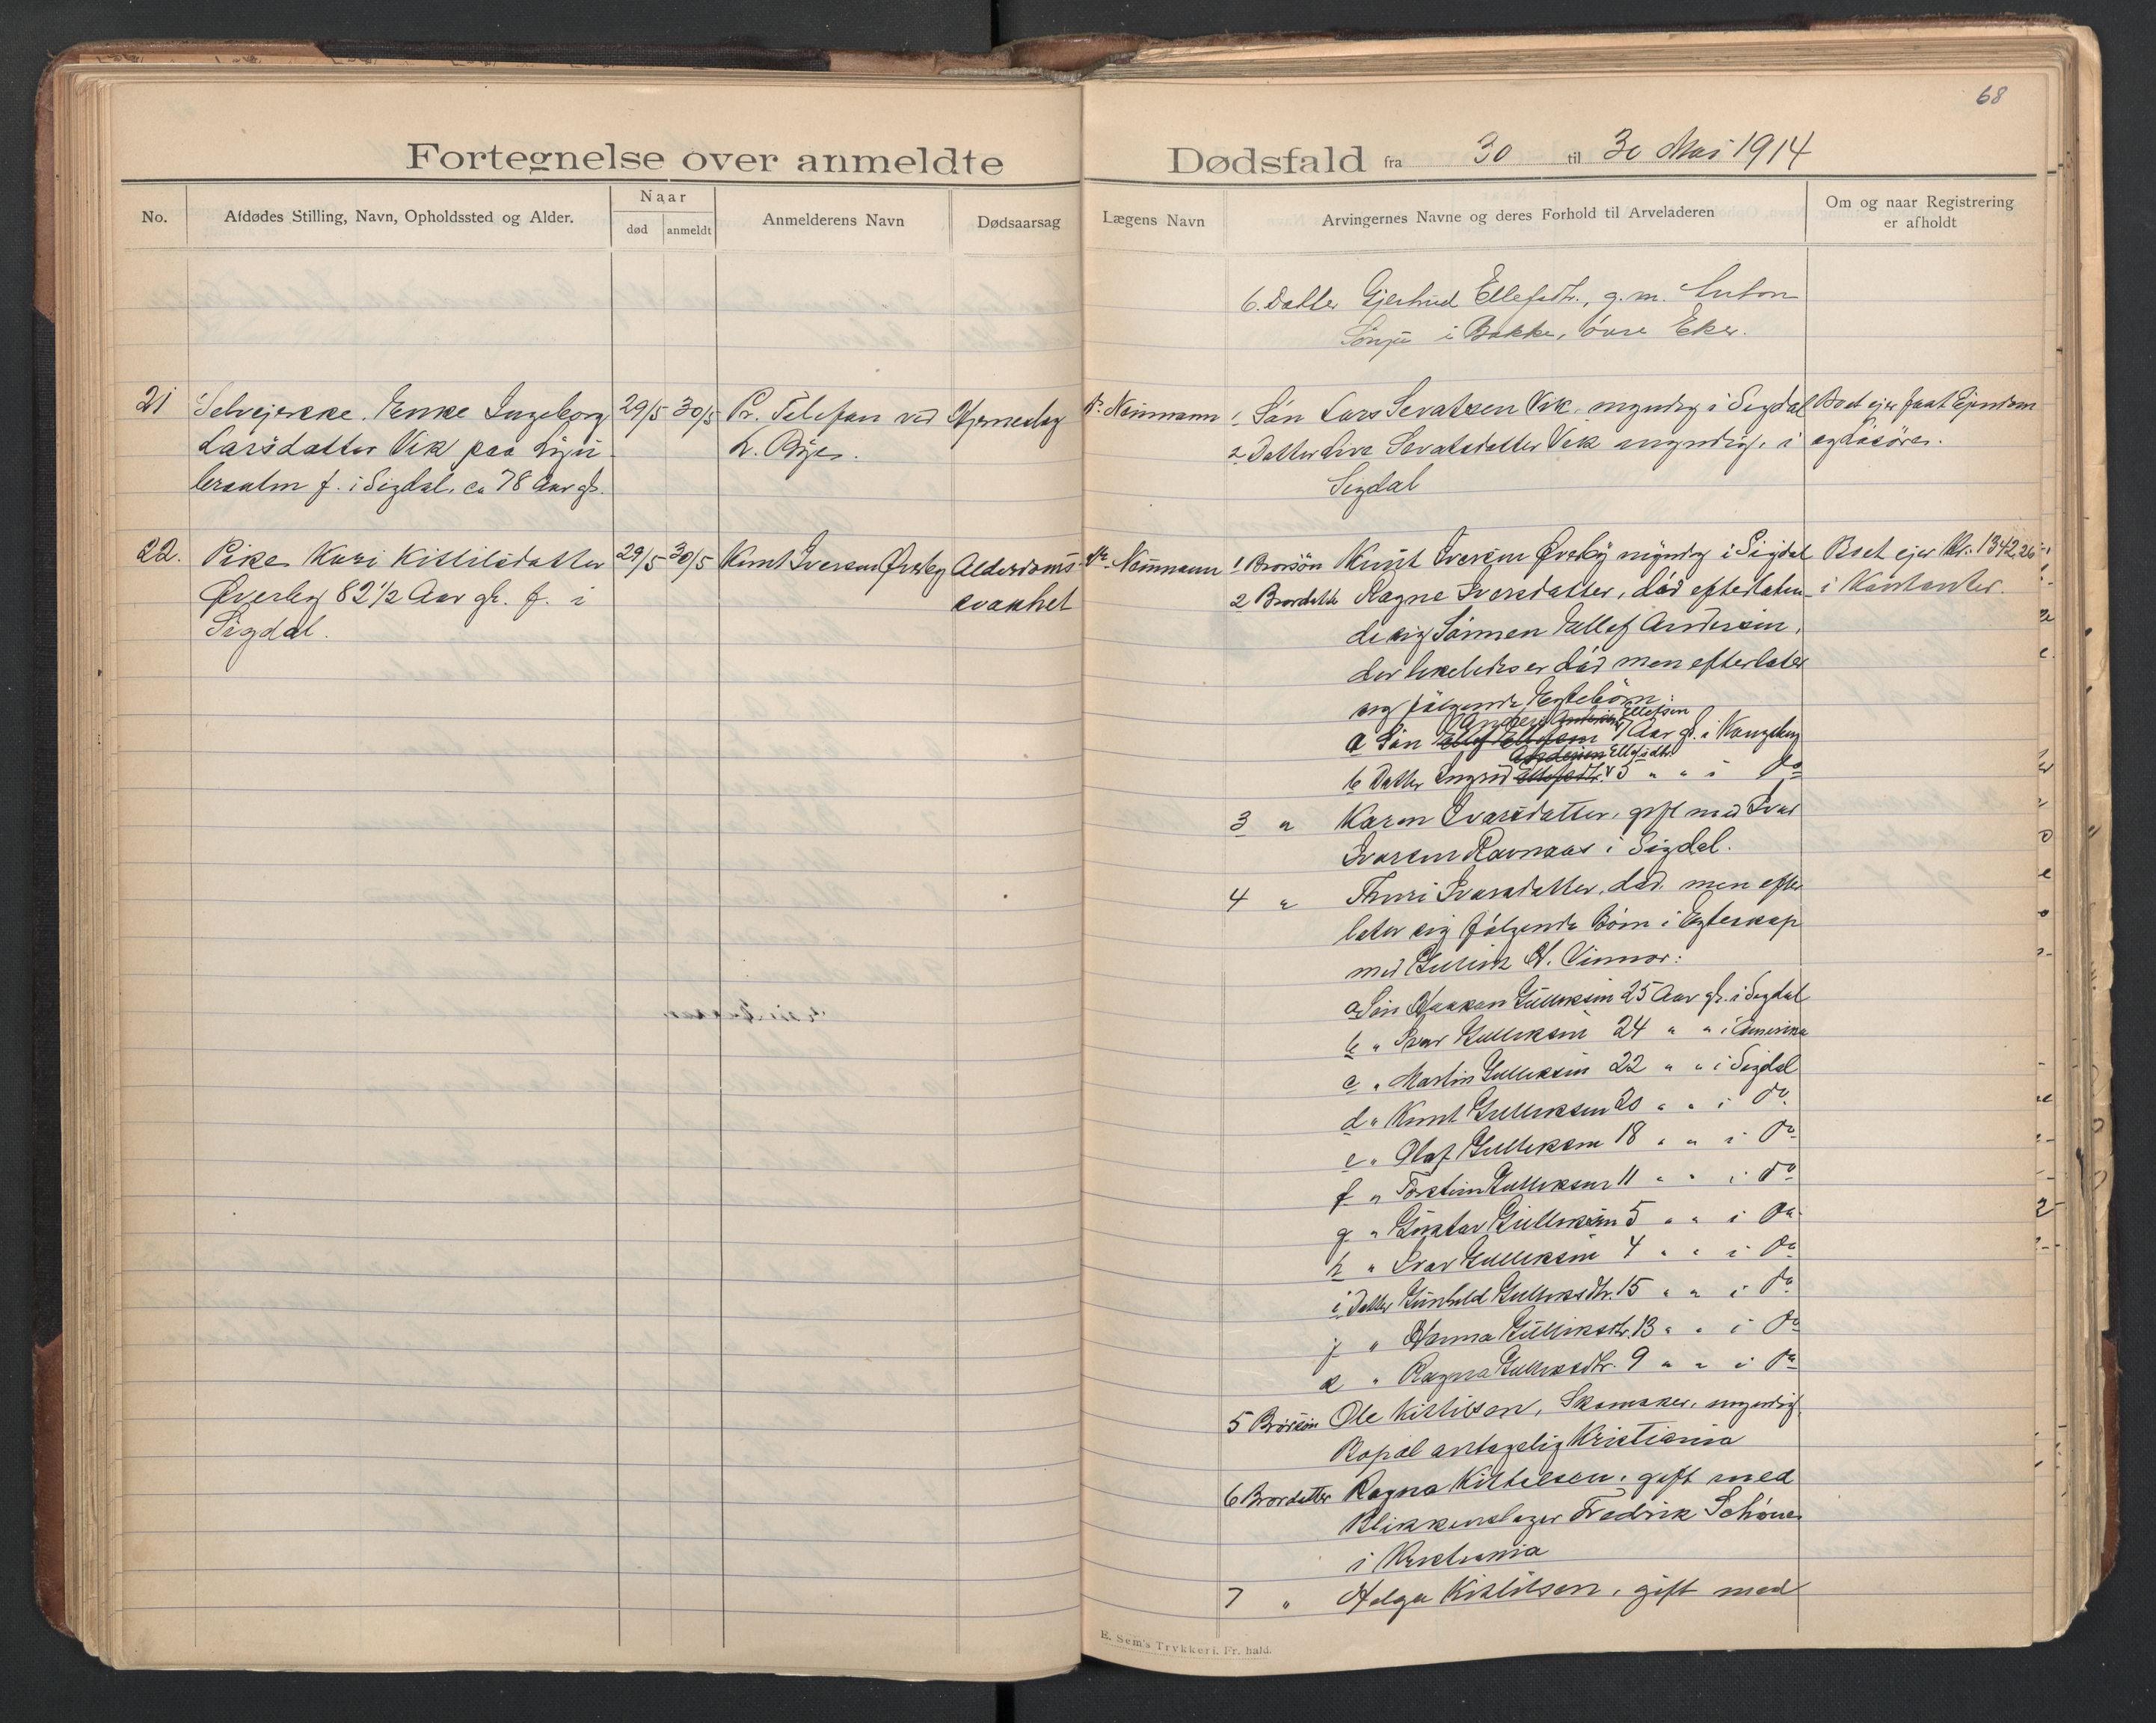 68
Fortegnelse over anmeldte Dødsfald fra 30 til 30 Mai 1914
No.
Afdødes Stilling, Navn, Opholdssted og Alder.
Naar
død
anmeldt
Anmelderens Navn
Dødsaarsag
Lægens Navn
Arvingernes Navne og deres Forhold til Arveladeren
Om og naar Registrering
er afholdt
6. Datter Gjertrud Ellefsdtr., g. m. Anton
i Bakke, Övre Eker.
21 Enke Ingeborg 29/5 30/5 Pr. Telefon ved Hjerneslag
Larsdatter Vik paa
f. i Sigdal. ca 78 Aar gl.
Dr. Neumann 1 Sön Lars Sevatsen Vik, myndig i Sigdal Boet ejer fast Ejendom
2 Datter Live Sevatsdatter Vik myndig, i og Lösöre.
Sigdal
22. Pike Kari Kittilsdatter 29/5 30/5 Knut Iversen Øverby Alderdoms-
Øverby 82 1/2 Aar gl. f. i svakhet
Sigdal.
Neumann 1 Brorsön Knut Iversen Øverby myndig i Sigdal Boet ejer Kr. 1342.26
2 Brordattr Ragne Iversdatter, död efterlaten- i Kontanter.
de sig Sönnen Ellef Andersen,
der likeledes er död men efterlater
sig fölgende Egtebörn:
Anders Ellefsen
a Sön Ellef Ellefsen 7 Aar gl. i Kongsberg
Andersen Ellefsdtr.
b Datter Ingrid Ellefsdtr. 5 " " i do
3 " Karen Ivarsdatter, gift med Ivar
Ivarsen Ravnaas i Sigdal.
4 " Thuri Ivarsdatter, död, men efter
later sig fölgende Börn i Egteskap
med Gulik H. Vinnor:
a Sön Haakon Gulliksen 25 Aar gl. i Sigdal
b " Ivar Gulliksen 24 " " i Amerika
c " Martin Gulliksen 22 " " i Sigdal
d " Knut Gulliksen 20 " " i do
e " Olaf Gulliksen 18 " " i do
f " Torstein Gulliksen 11 " " i do
g " Gustav Gulliksen 5 " " i do
h " Ivar Gulliksen 4 " " i do
i Datter Gunhild Gulliksdtr. 15 " " i do
j " Hanna Gulliksdtr. 13 " " i do
k " Ragna Gulliksdtr. 9 " " i do
5 Brorsön Ole Kittilsen, Skomaker, myndig,
Bopæl antagelig Kristiania
6 Brordatter Ragna Kittilsen, gift med
Blikkenslager Fredrik
i Kristiania
7 " Helga Kittilsen, gift med
E. Sem's Trykkeri. Fr. hald.